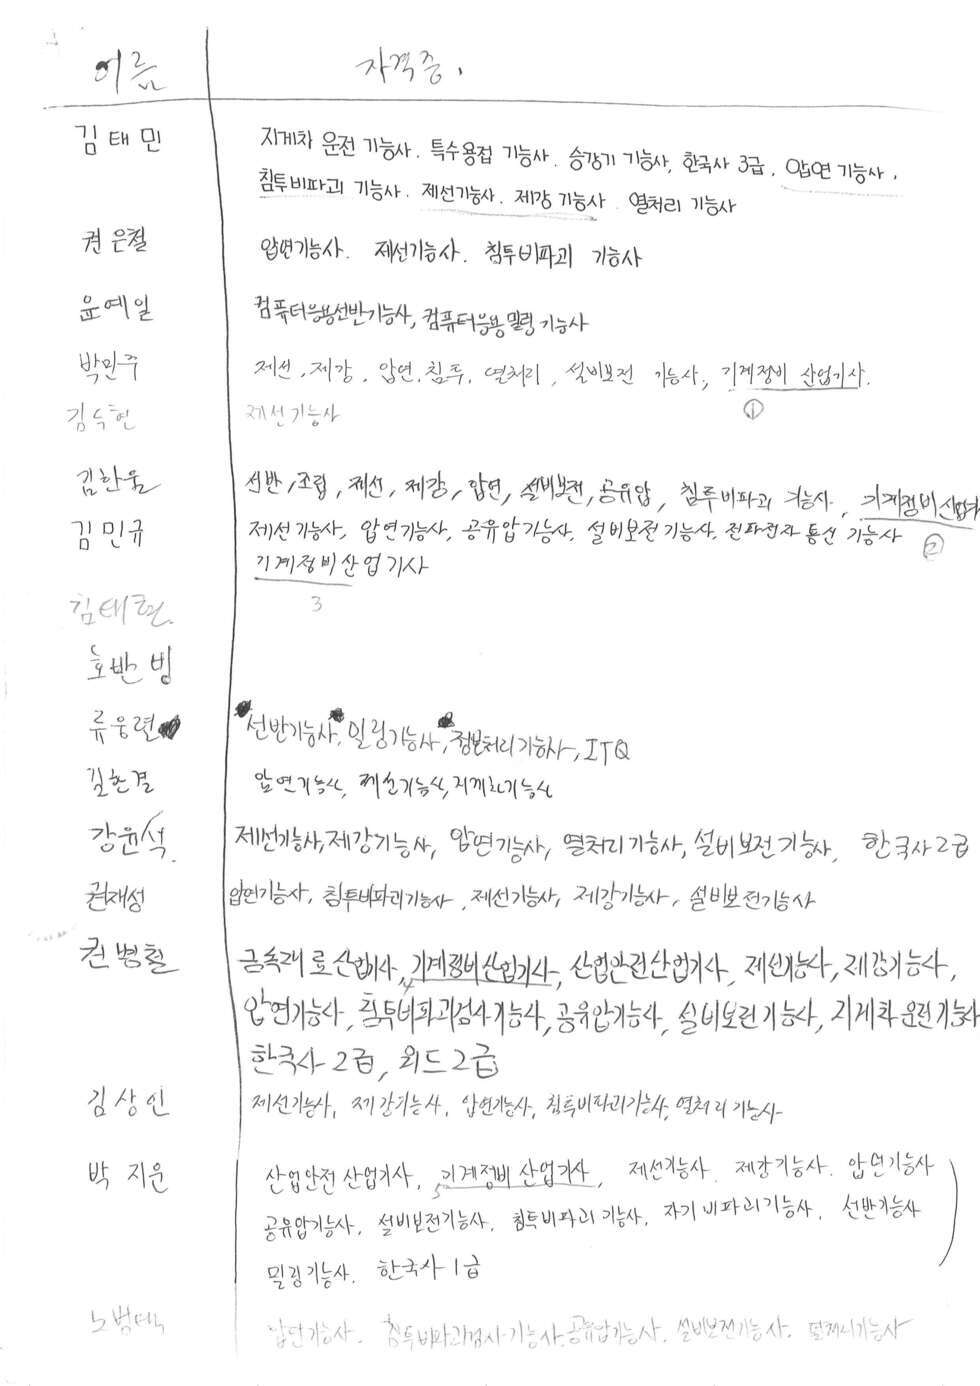 이름 자격증.
김태민 지게차 운전 기능사. 특수용접 기능사. 승강기 기능사, 한국사 3급, 압연기능사,
침투비파괴 기능사. 제선기능사. 제강기능사. 열처리 기능사
권은철 압연기능사. 제선기능사. 침투비파괴 기능사
윤예일 컴퓨터응용선반기능사, 컴퓨터응용밀링기능사
박민주 제선, 제강, 압연, 침투, 열처리, 설비보전 기능사, 기계정비 산업기사.
①
김수현 제선기능사
김한울 선반, 조립, 제선, 제강, 압연, 설비보전, 공유압, 침투비파괴 기능사, 기계정비산업기
김민규 제선기능사, 압연기능사, 공유압기능사, 설비보전기능사, 전파전자통신 기능사
②
기계정비산업기사
3
김태현
호반빙
류웅련 선반기능사, 밀링기능사, 정보처리기능사, ITQ
길한결 압연기능사, 제선기능사, 지게차기능사
강윤석. 제선기능사, 제강기능사, 압연기능사, 열처리기능사, 설비보전기능사, 한국사2급
권재성 압연기능사, 침투비파괴기능사, 제선기능사, 제강기능사, 설비보전기능사
권병철 금속재료산업기사, 기계정비산업기사, 산업안전산업기사, 제선기능사, 제강기능사,
4
압연기능사, 침투비파괴검사기능사, 공유압기능사, 설비보전기능사, 지게차운전기능사
한국사2급, 워드2급
김상인 제선기능사, 제강기능사, 압연기능사, 침투비파괴기능사, 열처리기능사
박지운 산업안전산업기사, 기계정비산업기사, 제선기능사. 제강기능사. 압연기능사
5
공유압기능사, 설비보전기능사, 침투비파괴기능사, 자기비파괴기능사, 선반기능사
밀링기능사. 한국사1급
압연기능사. 침투비파괴검사기능사. 공유압기능사. 설비보전기능사. 열처리기능사